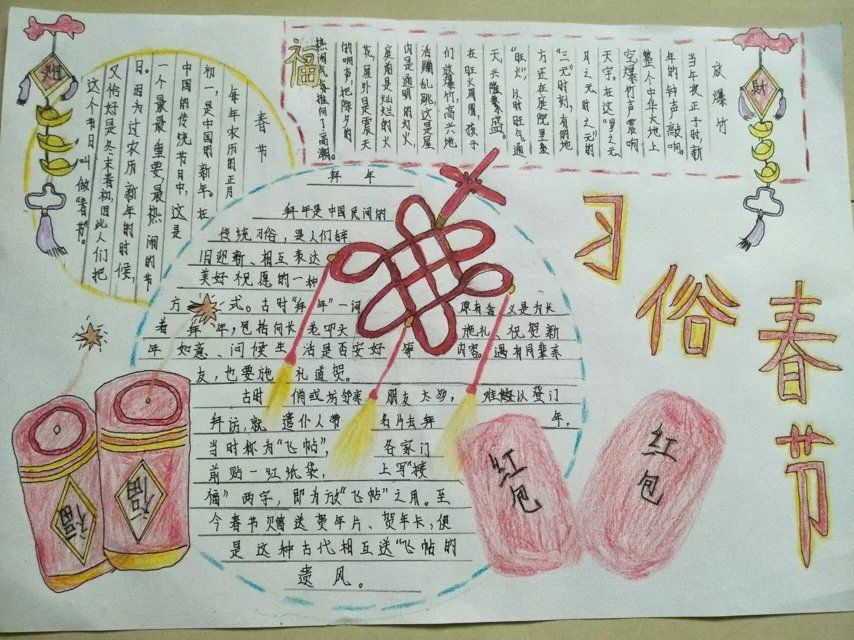 春节
每年农历的正月
初一,是中国的新年。在
中国的传统节日中,这是
一个最最重要,最热闹的节
日。因为过农历新年的时候,
又恰好是冬末春初,因此人们把
这个节日叫做"春节"。
放爆竹
当年夜正子时,新
年的钟声敲响。
整个中华大地上
空,爆竹声震响
天宇。在这"岁之元
月之元时之元"的
"三元"时刻,有的地
方还在庭院里垒
"旺火",以示旺气通
天,兴隆繁盛。
在旺火周围,孩子
们放爆竹,高兴地
活蹦乱跳,这是屋
内是通明的灯火
庭前是灿烂的火
花,屋外是震天
的响声,把除夕的
热闹气氛推向了高潮。
福
财
财
拜年
拜年是中国民间的
传统习俗,是人们辞
旧迎新、相互表达
美好祝愿的一种
方式。古时"拜年"一词原有含义是为长
者拜年,包括向长 叩头施礼、祝贺新
年如意、问候生活是否安好等内容。遇有同辈亲
友,也要施礼道贺。
古时 倘或坊邻亲朋友太多,难 以登门
拜访,就遣仆人带名片去拜年,
当时称为"飞帖",各家门
前贴一红纸袋,上写"接
福"两字,即为放"飞帖"之用。至
今春节赠送贺年片、贺年卡,便
是这种古代相互送"飞帖的
遗风。
习俗
春节
福
福
红包
红包